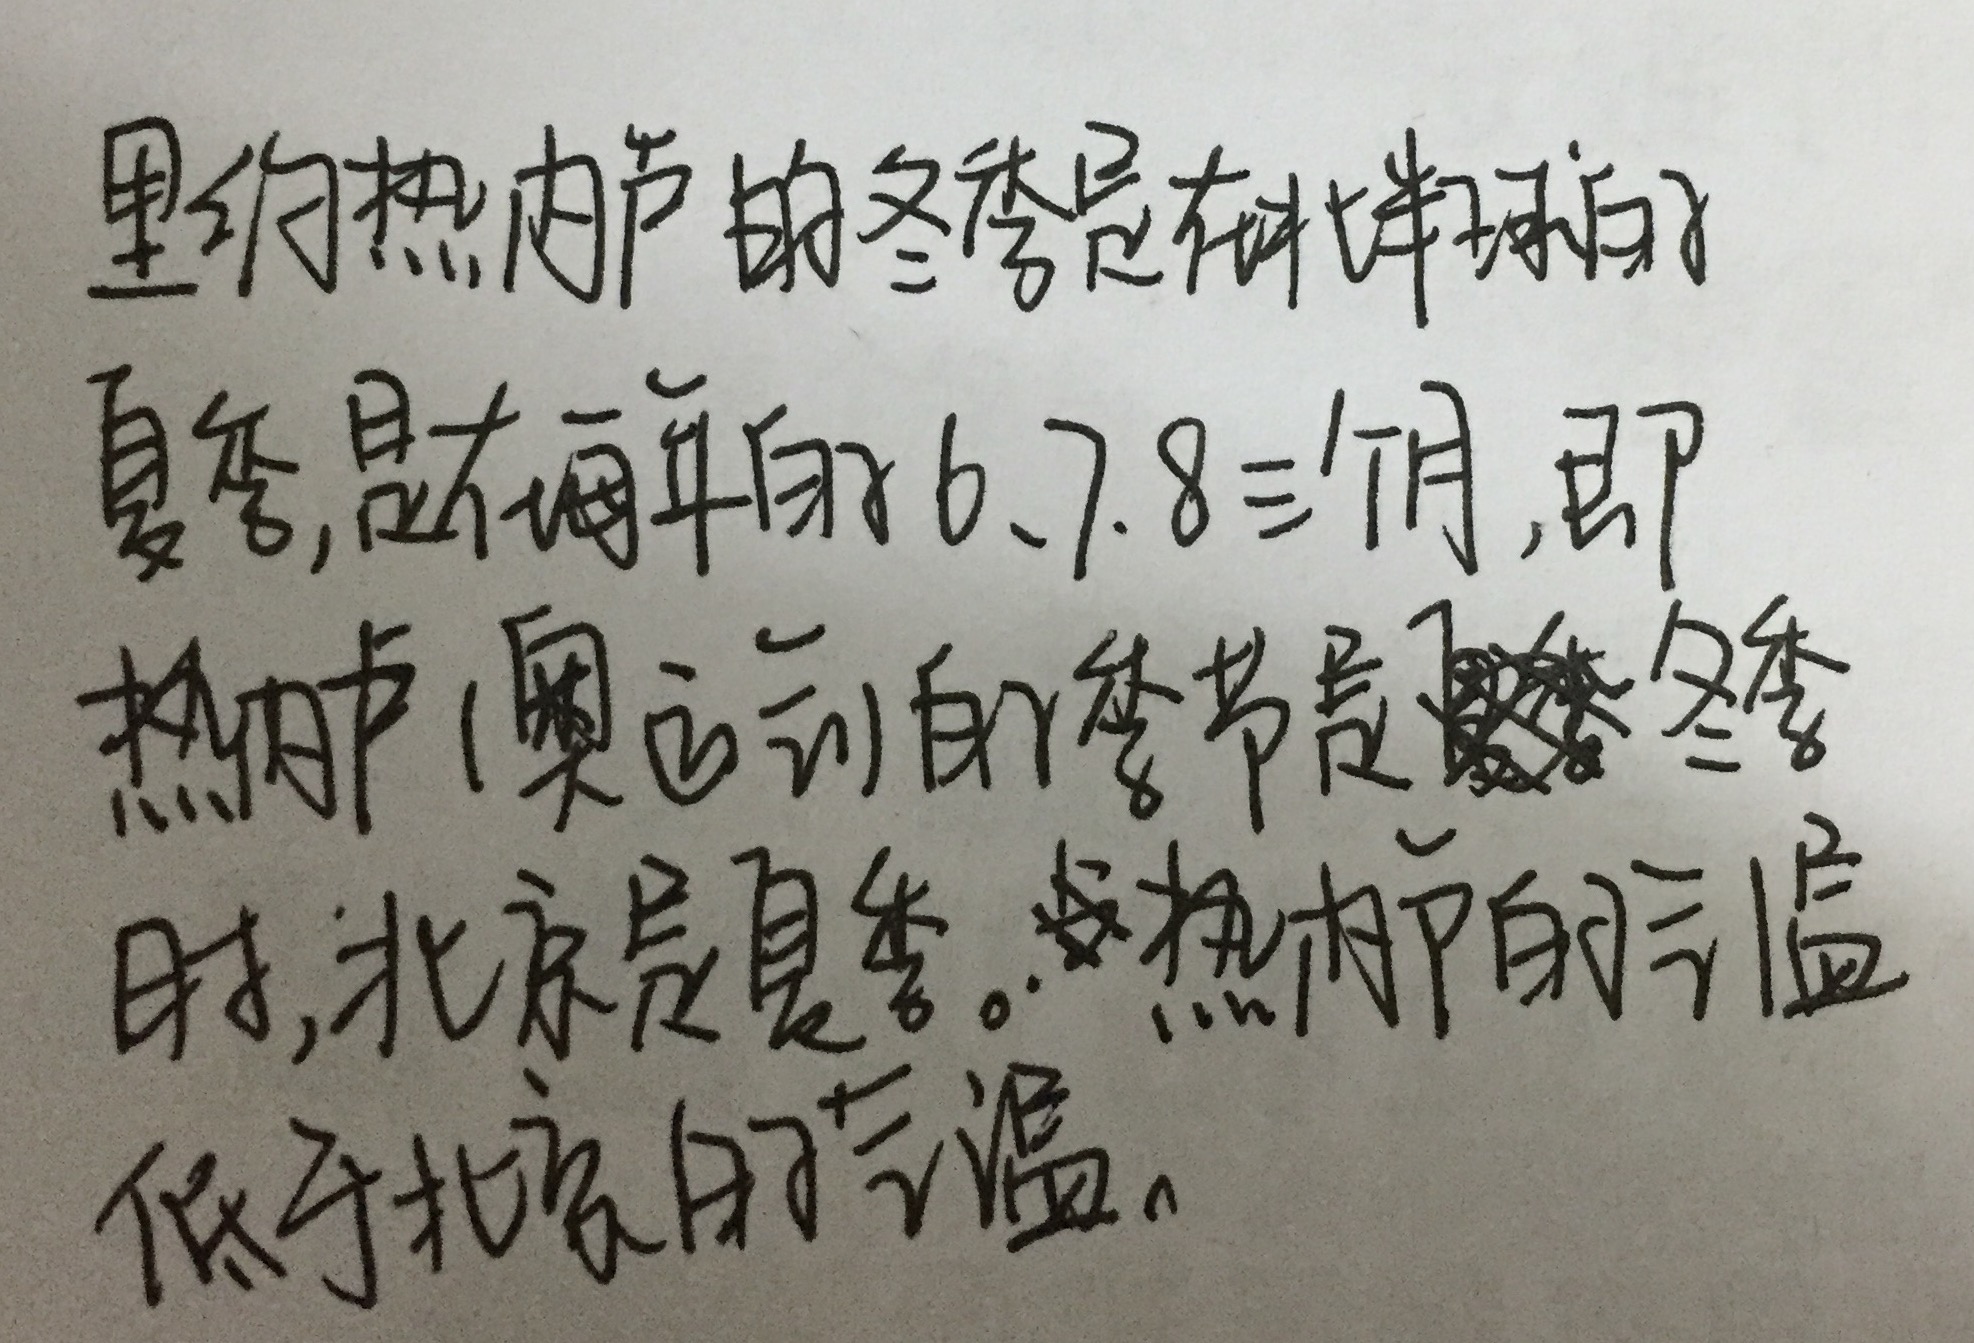 里约热内卢的冬季是在北半球的
夏季,是在每年的6、7.8三个月,即
热内卢(奥运会)的季节是冬季
时,北京是夏季。热内卢的气温
低于北京的气温。